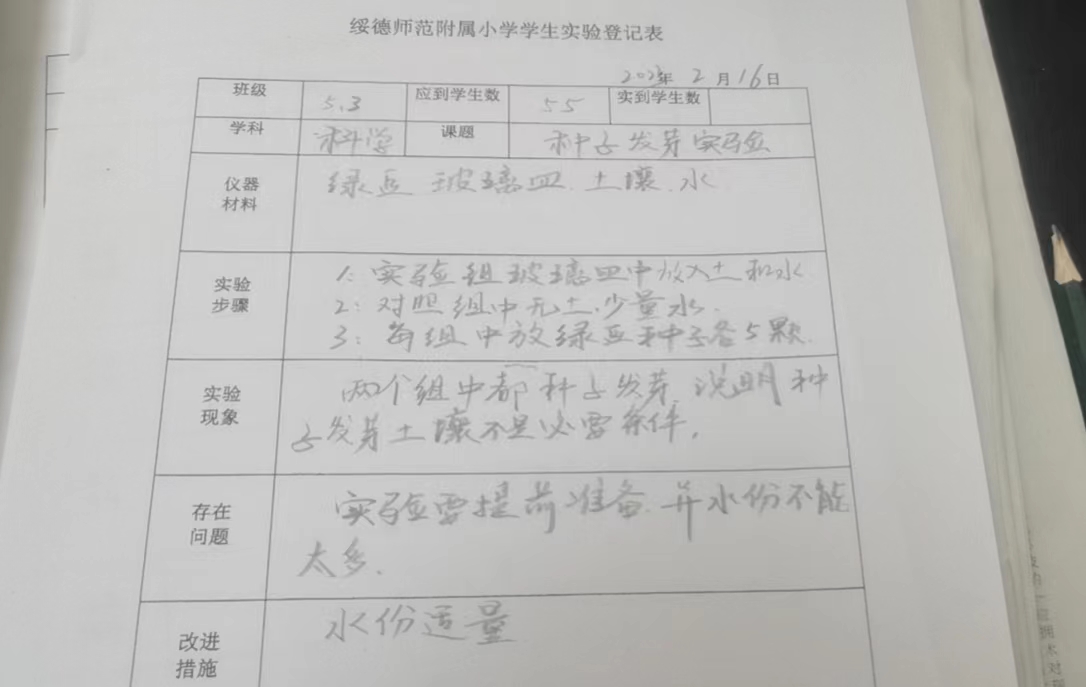 绥德师范附属小学学生实验登记表
2023年 2 月 16 日
班级 5.3 应到学生数 55 实到学生数
学科 科学 课题 种子发芽实验
仪器材料 绿豆 玻璃皿. 土壤. 水
实验步骤
1: 实验组玻璃皿中放入土和水
2: 对照组中无土少量水.
3: 每组中放绿豆种子各5颗.
实验现象
两个组中都种子发芽. 说明种
子发芽土壤不是必要条件.
存在问题
实验要提前准备. 并水份不能
太多.
改进措施
水份适量